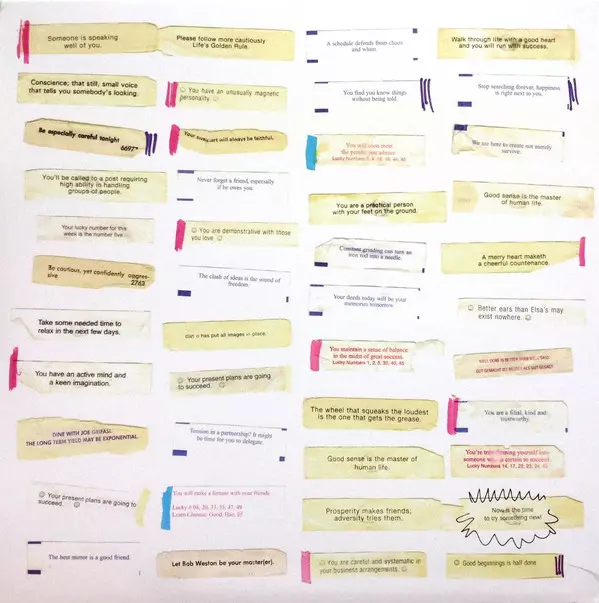 Someone is speaking
well of you.
Conscience; that still, small voice
that tells you somebody's looking.
Be especially careful tonight
6697
You'll be called to a post requiring
high ability in handling
groups of people.
Your lucky number for this
week is the number five.
Be cautious, yet confidently aggres-
sive
2763
Take some needed time to
relax in the next few days.
You have an active mind and
a keen imagination.
DINE WITH JOE
THE LONG TERM YIELD MAY BE EXPONENTIAL.
☺ Your present plans are going to
succeed. ☺
The best mirror is a good friend.
Please follow more cautiously
Life's Golden Rule.
☺ You have an unusually magnetic
personality. ☺
Your sweetheart will always be faithful.
Never forget a friend, especially
if he owes you.
☺ You are demonstrative with those
you love ☺
The clash of ideas is the sound of
freedom.
has put all images in place.
☺ Your present plans are going
to succeed. ☺
Tension in a partnership? It might
be time for you to delegate.
You will make a fortune with your friends
Lucky # 06, 20, 37, 15, 47, 49
Learn Chinese:
Let Bob Weston be your master(er).
A schedule defends from chaos
and whim.
You find you know things
without being told.
You will soon meet
the person you admire
Lucky Numbers
You are a practical person
with your feet on the ground.
Constant grinding can turn an
iron rod into a needle.
Your deeds today will be your
memories tomorrow.
You maintain a sense of balance
in the midst of great success.
Lucky Numbers 1, 2, 5, 30, 40, 45
The wheel that squeaks the loudest
is the one that gets the grease.
Good sense is the master of
human life.
Prosperity makes friends,
adversity tries them.
☺ You are careful and systematic in
your business arrangements. ☺
Walk through life with a good heart
and you will run with success.
Stop searching forever, happiness
is right next to you.
We are here to create not merely
survive.
Good sense is the master
of human life.
A merry heart maketh
a cheerful countenance.
☺ Better ears than Elsa's may
exist nowhere. ☺
WELL DONE IS BETTER THAN WELL SAID
You are a kind and
trustworthy.
You're transforming yourself into
someone who is certain to succeed.
Lucky Numbers 14, 17, 20, 23, 24, 45
Now is the time
to try something new!
☺ Good beginnings is half done